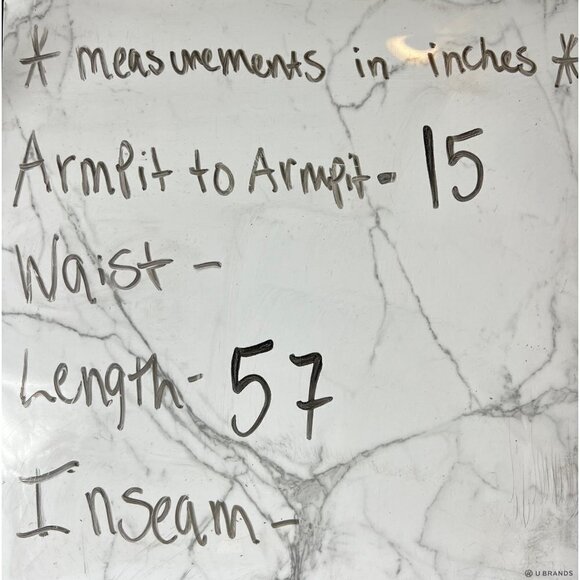 * measurements in inches *
Armpit to Armpit - 15
Waist -
Length - 57
Inseam -
U BRANDS